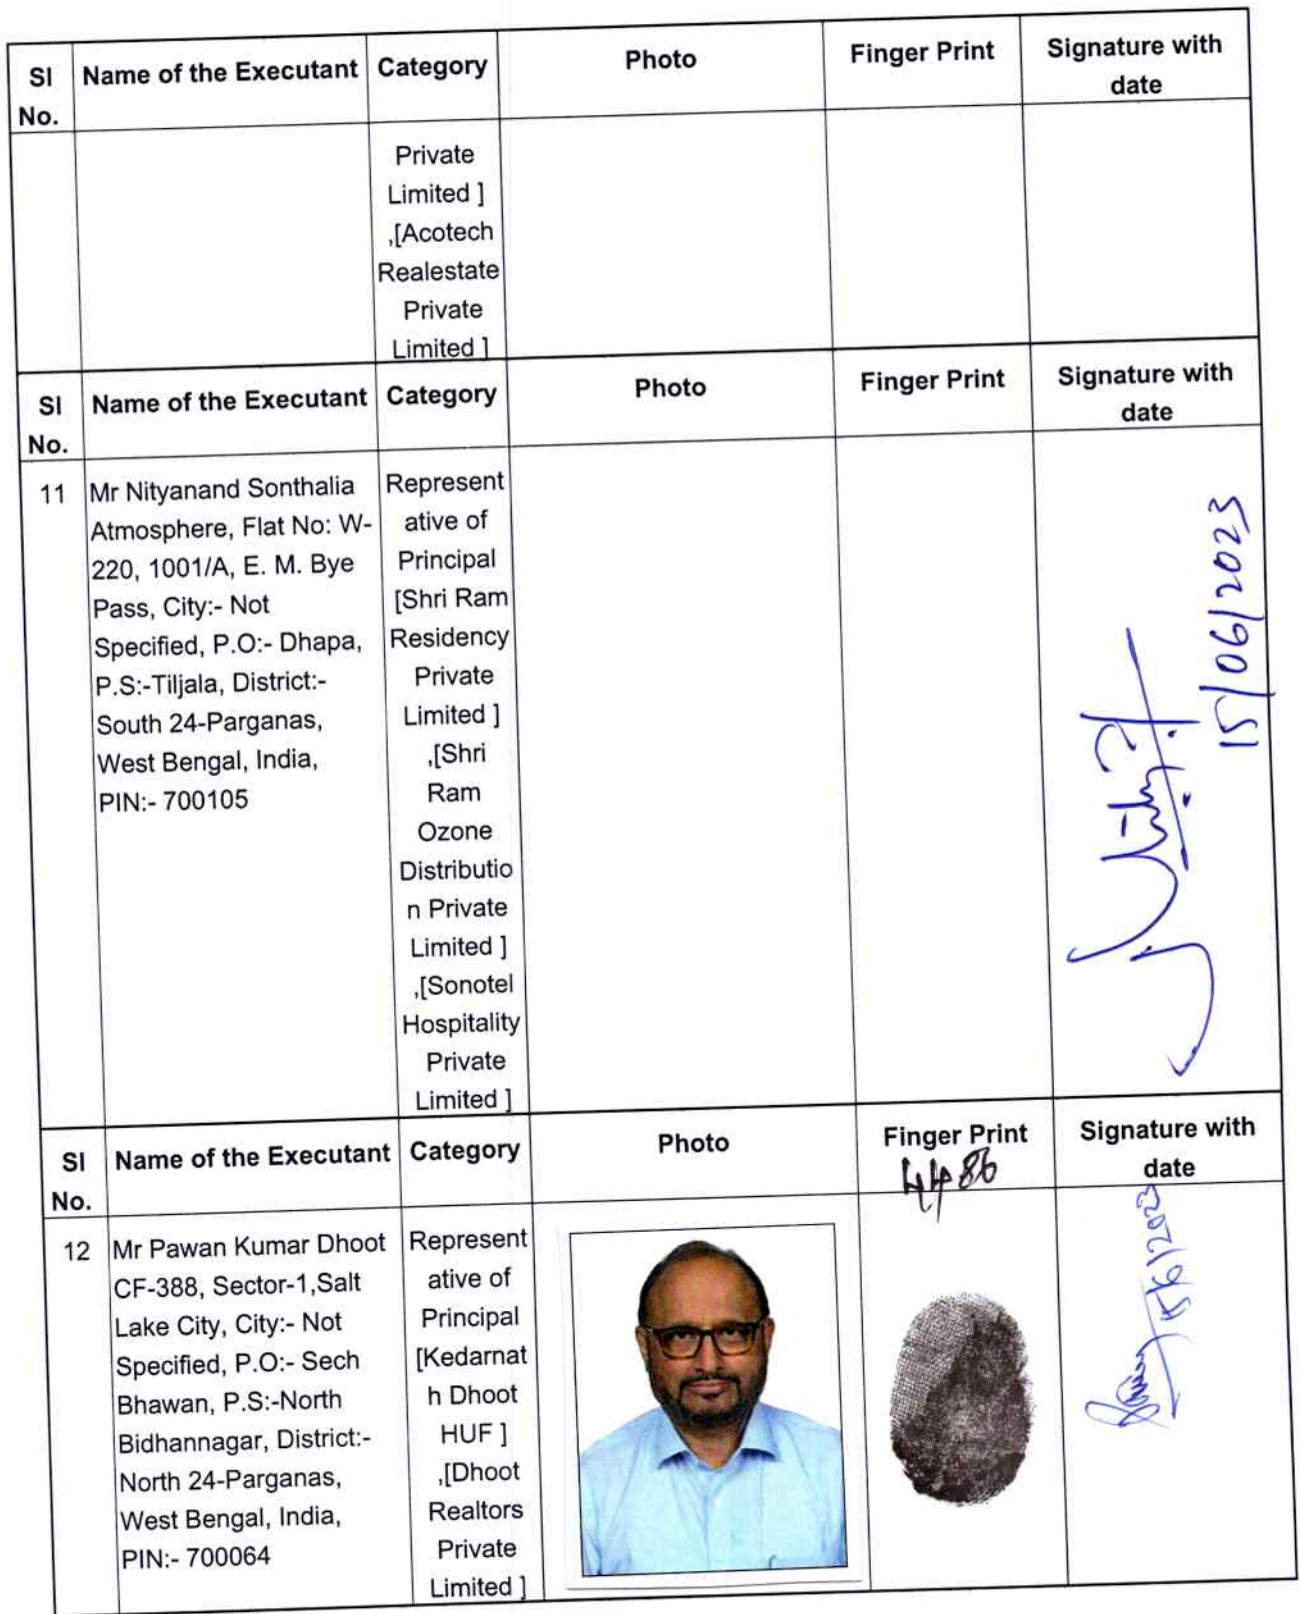 Sl Name of the Executant Category Photo Finger Print Signature with
No. date
Private
Limited ]
,[Acotech
Realestate
Private
Limited ]
Sl Name of the Executant Category Photo Finger Print Signature with
No. date
11
Mr Nityanand Sonthalia
Atmosphere, Flat No: W-
220, 1001/A, E. M. Bye
Pass, City:- Not
Specified, P.O:- Dhapa,
P.S:-Tiljala, District:-
South 24-Parganas,
West Bengal, India,
PIN:- 700105
Represent
ative of
Principal
[Shri Ram
Residency
Private
Limited ]
,[Shri
Ram
Ozone
Distributio
n Private
Limited ]
,[Sonotel
Hospitality
Private
Limited ]
15/06/2023
Sl Name of the Executant Category Photo Finger Print Signature with
No. date
12
Mr Pawan Kumar Dhoot
CF-388, Sector-1,Salt
Lake City, City:- Not
Specified, P.O:- Sech
Bhawan, P.S:-North
Bidhannagar, District:-
North 24-Parganas,
West Bengal, India,
PIN:- 700064
Represent
ative of
Principal
[Kedarnat
h Dhoot
HUF ]
,[Dhoot
Realtors
Private
Limited ]
4486
15/6/2023